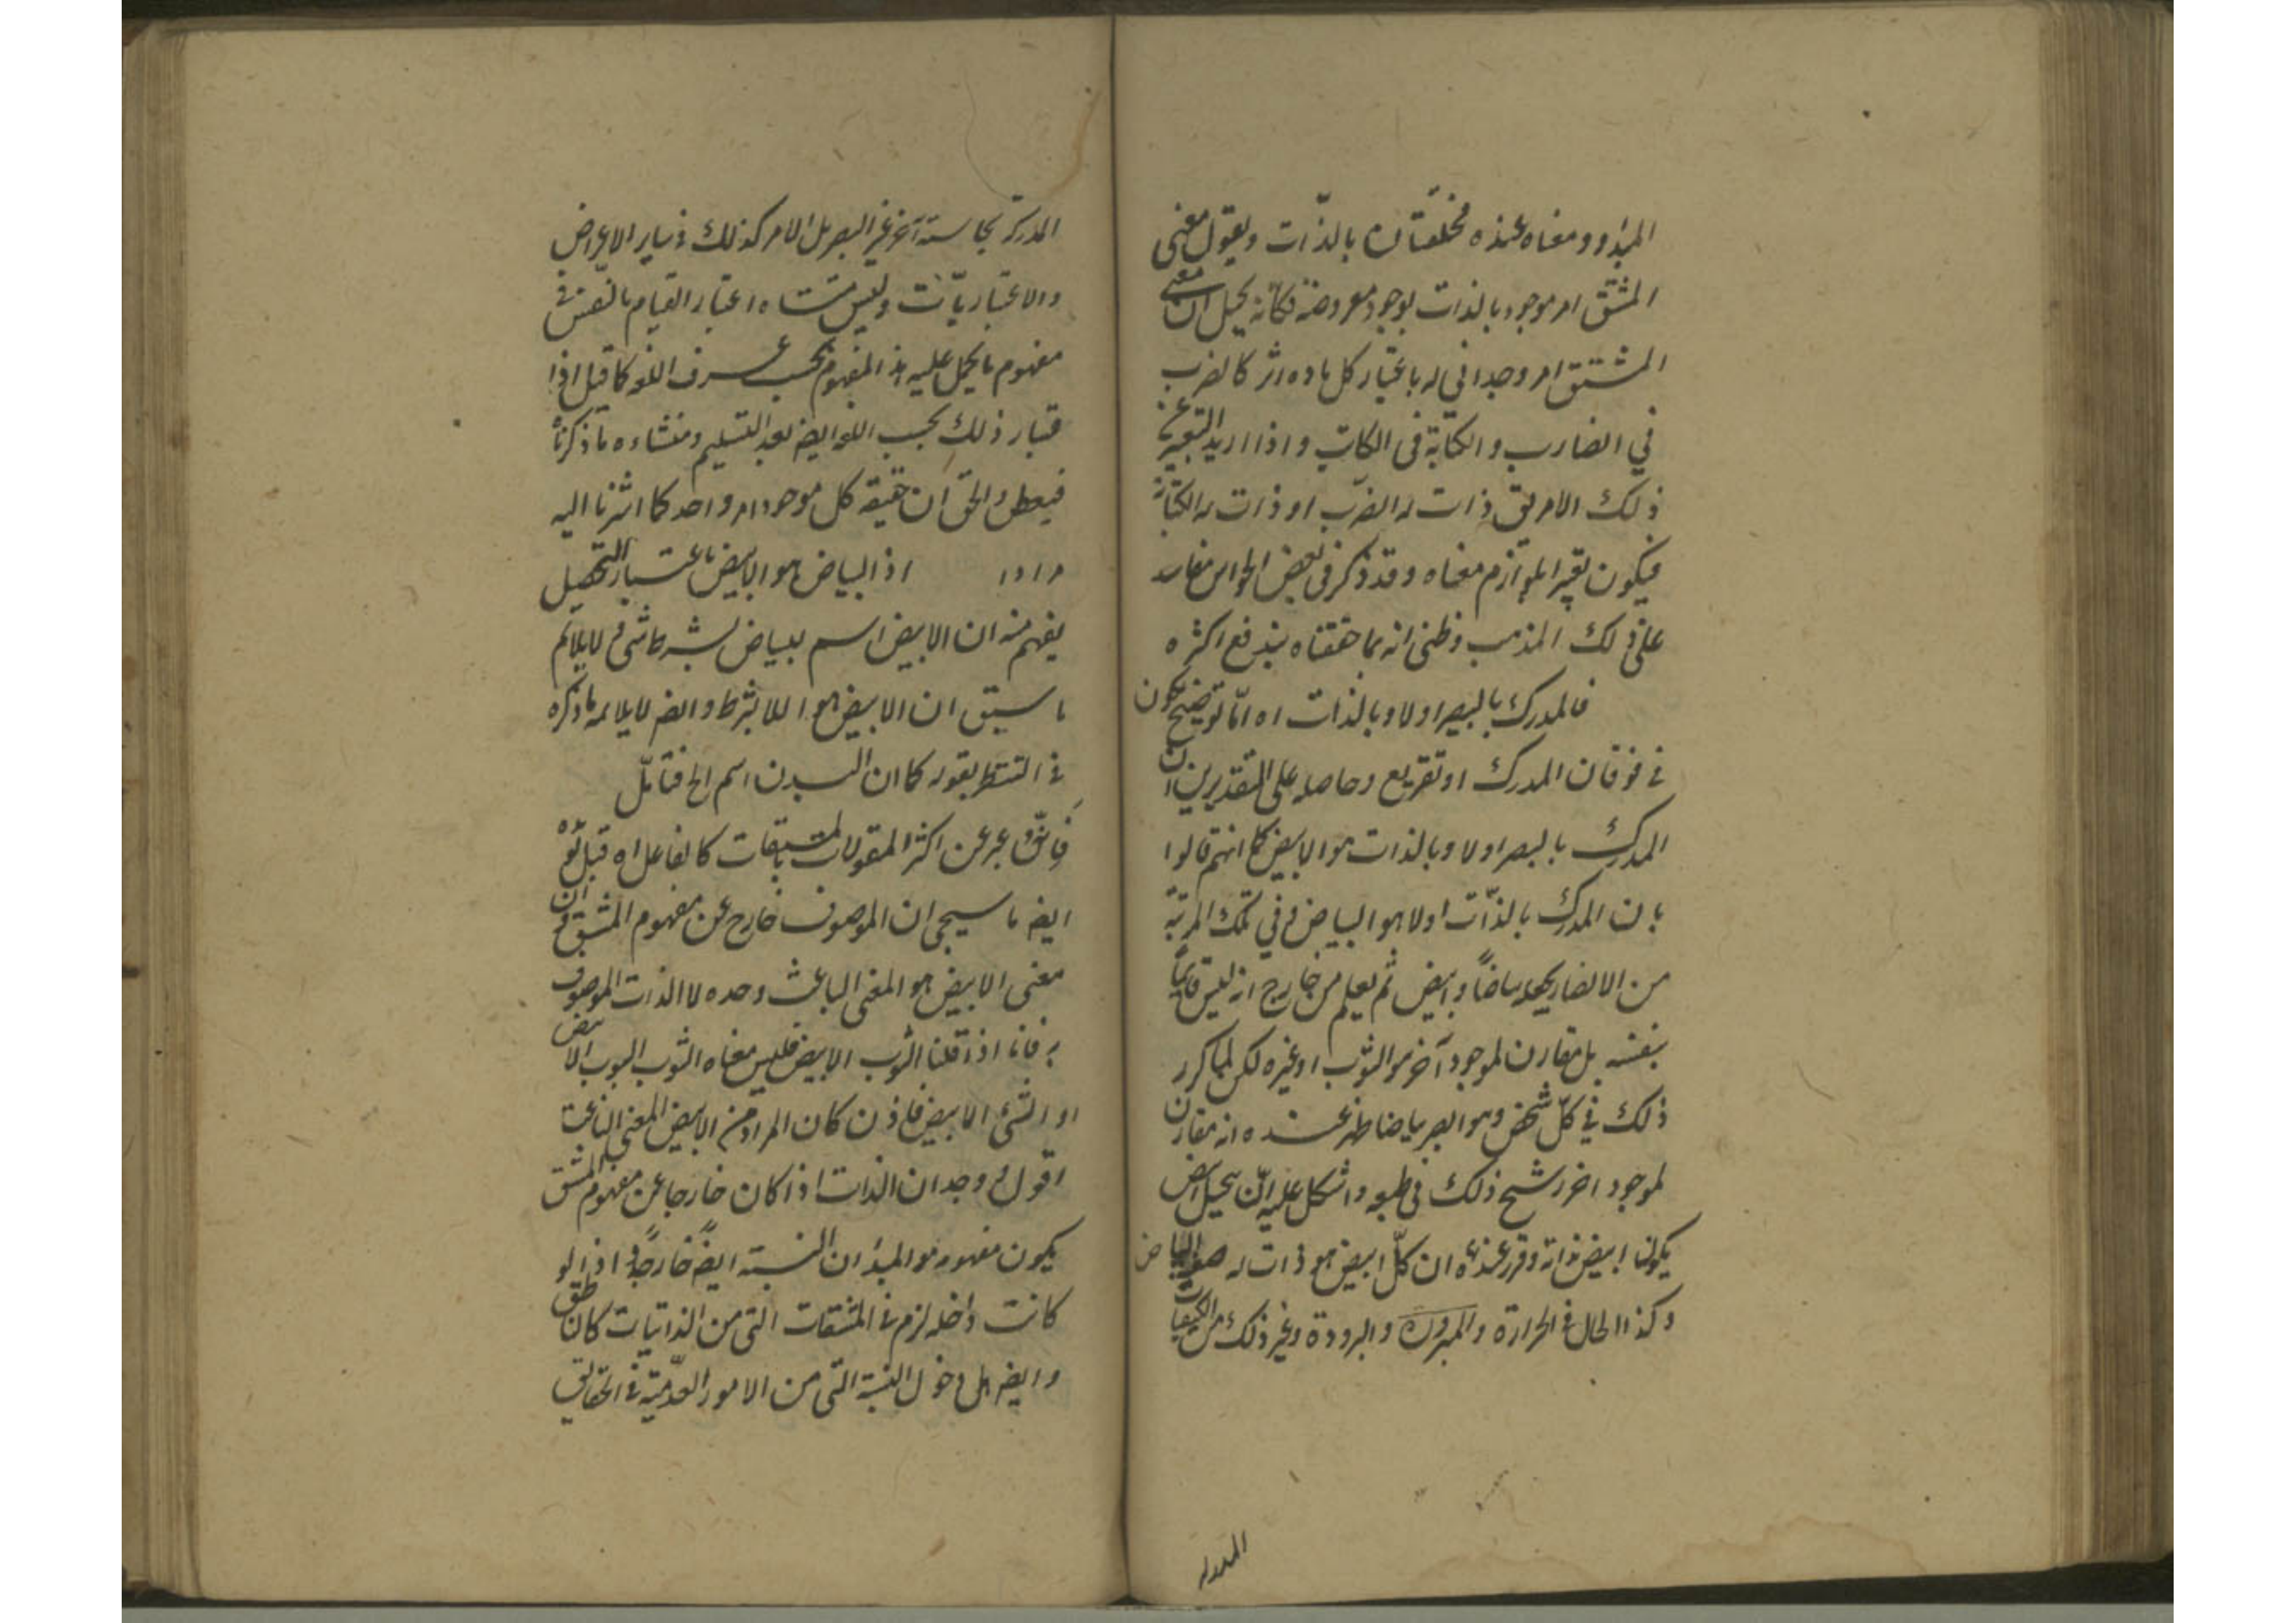 المبدأ ومعناه عنده مختلفتان بالذات ويقول معنى
المشتق امر موجود بالذات بوجود معروضة فكأنه يحيل ان معنى
المشتق امر وجداني له باعتبار كل مادة اثر كالضرب
في الضارب والكتابة في الكاتب واذا اريد التعبير عن
ذلك الامر يق ذات له الضرب او ذات له الكتابة
فيكون تعبيرا بلوازم معناه وقد ذكر في بعض الحواس مفاسد
على ذلك المذهب وظني انه بما حققناه يندفع اكثره
فالمدرك بالبصر اولا وبالذات اه اما توضيح
في فوقان المدرك او تفريع وحاصله على التقديرين ان
المدرك بالبصر اولا وبالذات هو الابيض كما انهم قالوا
بان المدرك بالذات اولا هو البياض وفي تلك المرتبة
من الابصار بياضا وابيض ثم يعلم من خارج انه ليس قائما
بنفسه بل مقارن لموجود آخر هو الثوب او غيره لكن لما كرر
ذلك في كل شخص وهو ابصر بياضا ظهر عنده انه مقارن
لموجود اخر رسخ ذلك في طبعه واشكل عليه
ابيض بذاته وقرر عنده ان كل ابيض هو ذات له البياض
وكذا الحال في الحرارة والبرودة وغير ذلك من الكيفيات
المدركة
المدركة بحاسة آخر غير البصر بل الامر كذلك في ساير الاعراض
والاعتباريات وليس منشاه اعتبار القيام بالنفس في
مفهوم ما يحمل عليه هذا المفهوم بحسب عرف اللغة كما قيل اذا
ذلك بحسب اللغة ايضا بعد التسليم ومنشاءه ما ذكرنا
فيبطل والحق ان حقيقة كل موجود امر واحد كما اشرنا اليه
اذ البياض هو الابيض باعتبار التحصيل
يفهم منه ان الابيض اسم للبياض بشرط شئ ولا يلائم
ما سبق ان الابيض هو اللا بشرط وايضا لا يلائمه ما ذكره
في التنظير بقوله كما ان البدن اسم الخ فتأمل
عبر عن اكثر المقولات بالمشتقات كالفاعل اه قيل
ايضا ما سيجئ ان الموصوف خارج عن مفهوم المشتق وان
معنى الابيض هو المعنى الناعت وحده لا الذات الموصوف
به فانا اذا قلنا الثوب الابيض فليس معناه الثوب الثوب الابيض
او الشئ الابيض فاذن كان المراد من الابيض المعنى الناعت
اقول وجد ان الذات اذا كان خارجا عن مفهوم المشتق
يكون مفهومه هو المبدأ ان النسبة ايضا خارجة اذ لو
كانت داخلة لزم في المشتقات التي من الذاتيات كالناطق
وايضا بل دخول النسبة التي من الامور العدمية في الحقايق